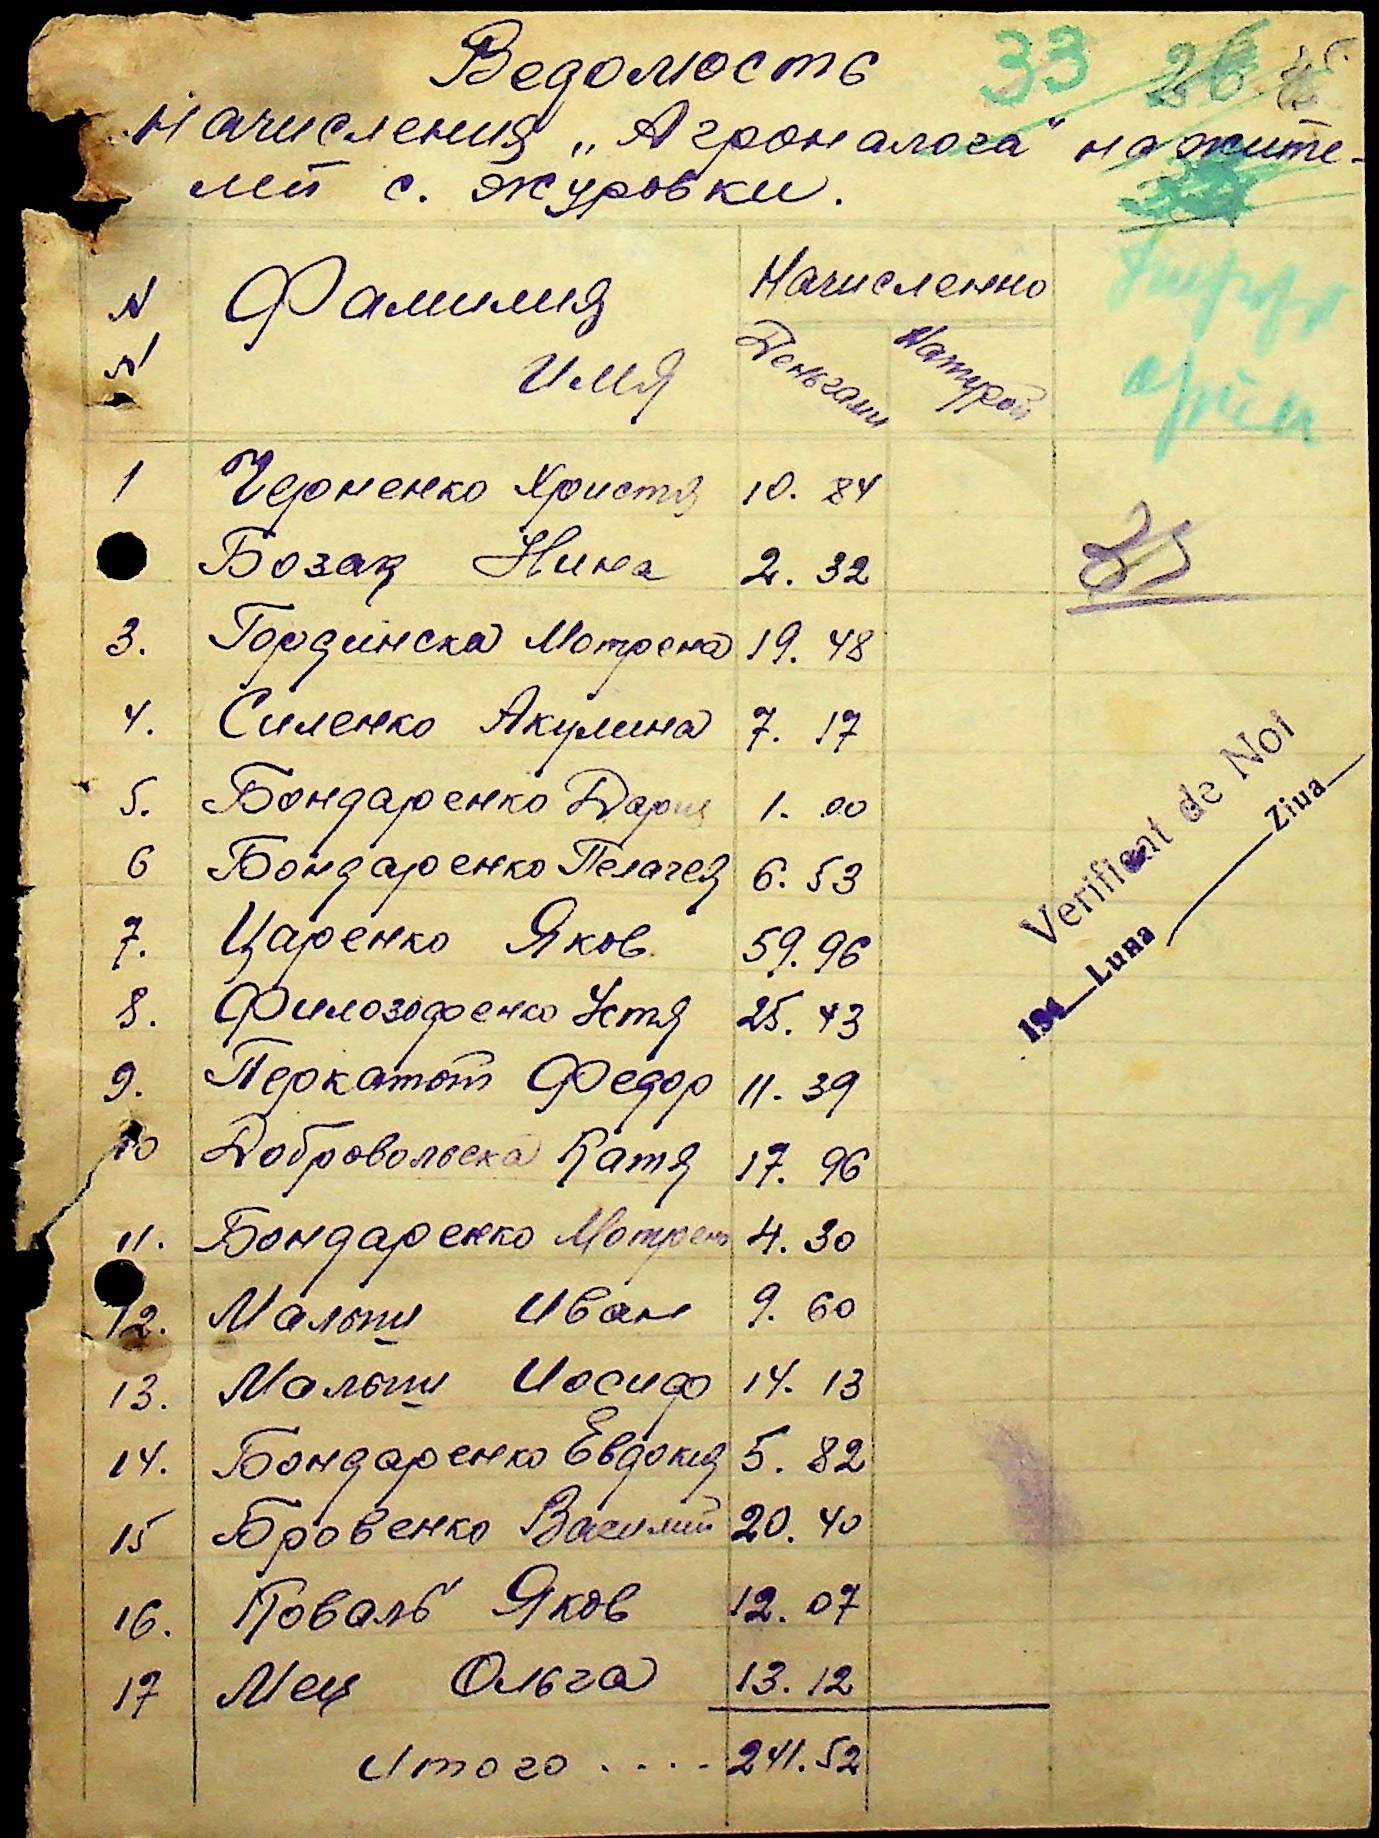 33 26
Ведомость
Начисления „Агроналога" на жите-
лей с. Журовки.
N N Фамилия Имя Начисленно
Деньгами Натурой
1 Черненко Христя 10. 84
Бозак Нина 2. 32
3. Гординска Мотрена 19. 48
4. Силенко Акулина 7. 17
5. Бондаренко Дария 1. 00
6 Бондаренко Пелагея 6. 53
7. Царенко Яков 59. 96
8. Филозофенко Устя 25. 43
9. Перкатый Федор 11. 39
10 Добровольска Катя 17. 96
11. Бондаренко Мотрена 4. 30
12. Малыш Иван 9. 60
13. Малыш Иосиф 14. 13
14. Бондаренко Евдокия 5. 82
15 Бровенко Василий 20. 40
16. Коваль Яков 12. 07
17 Мец Ольга 13. 12
Итого .... 241. 52
Verificat de Noi
194 Luna Ziua